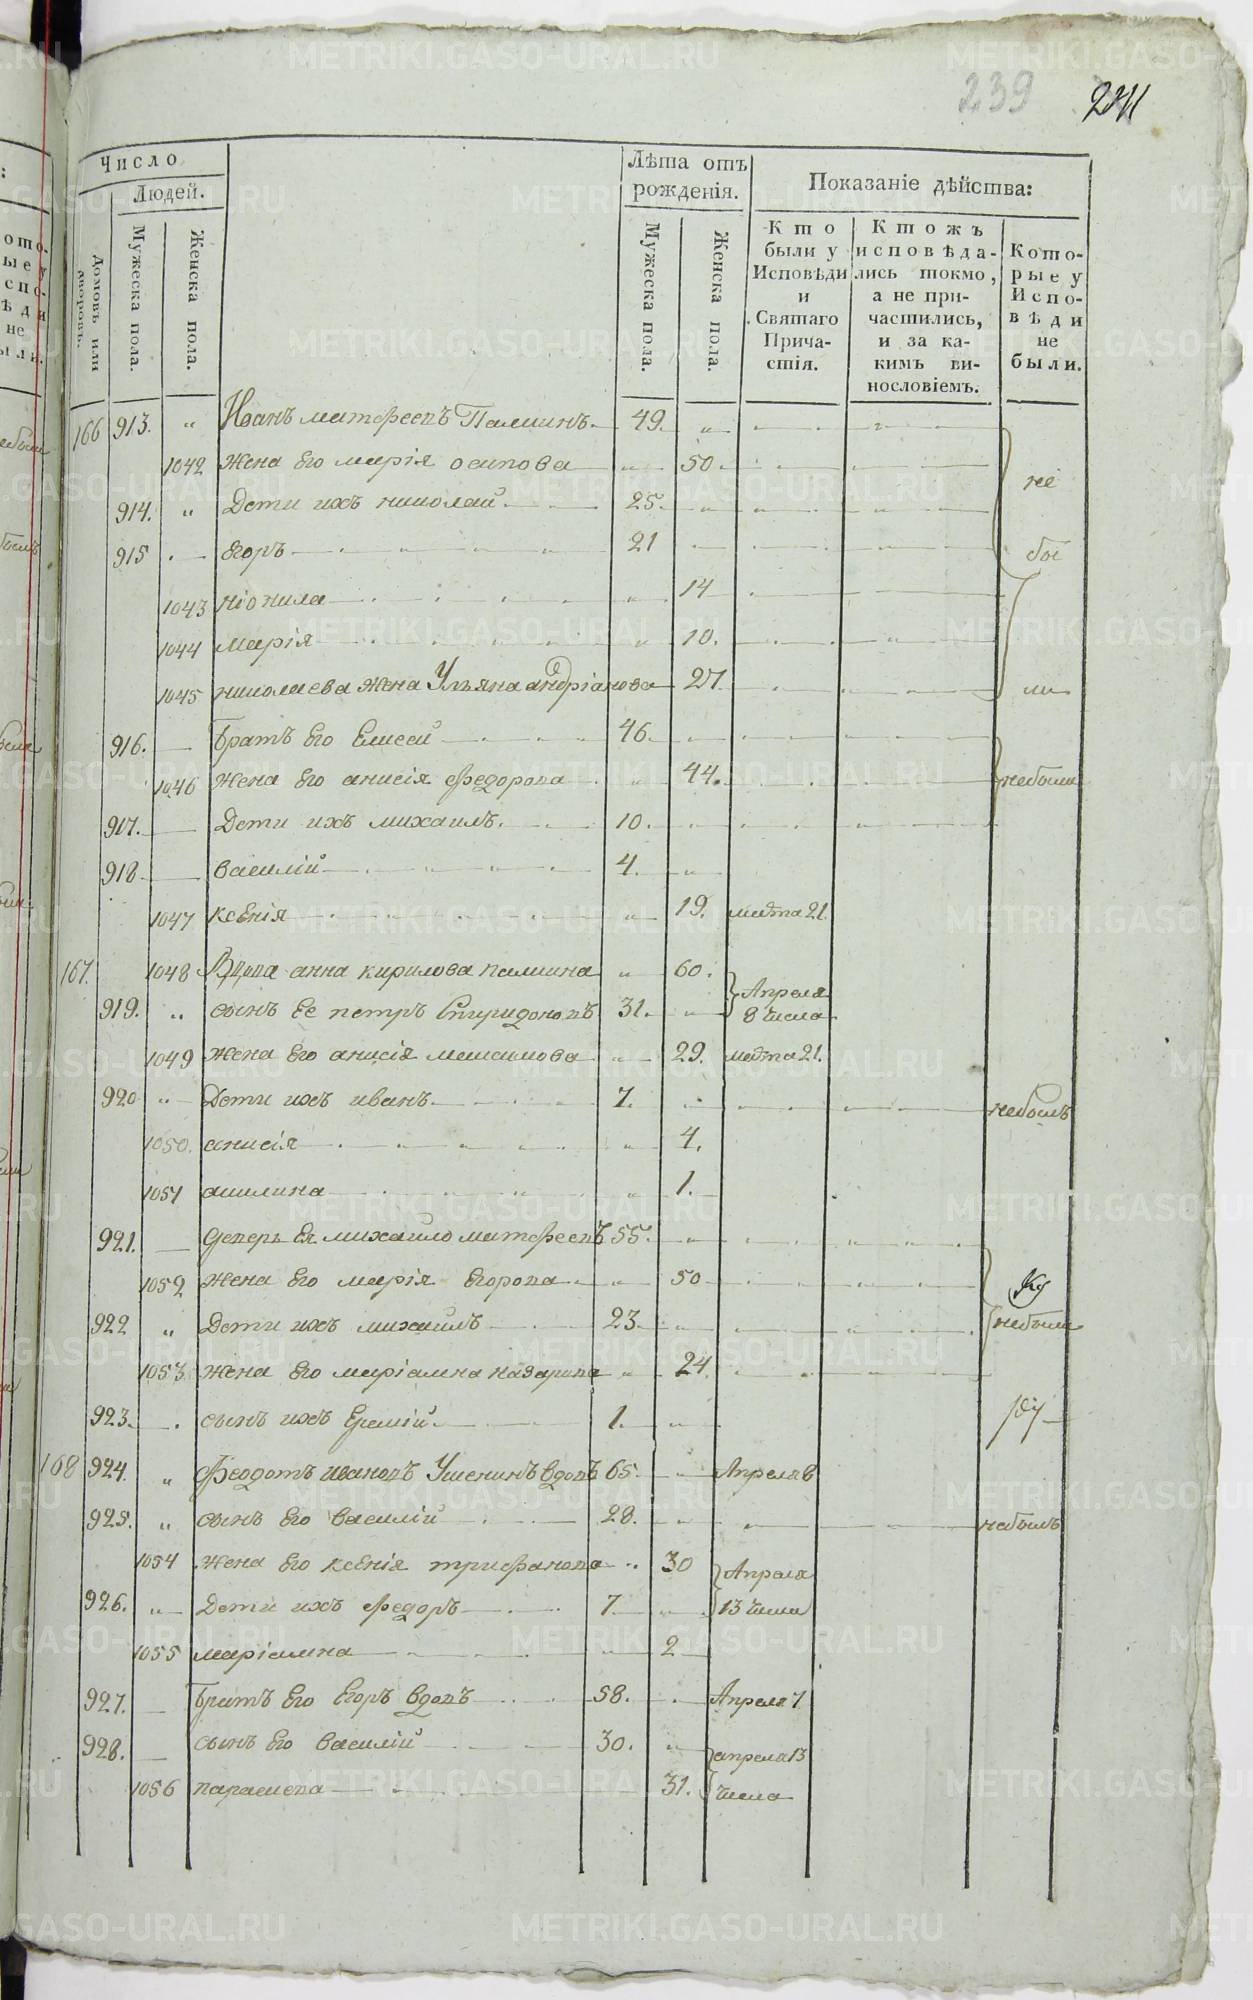 239 241
Число
Людей.
Домовъ или дворовъ.
Мужеска пола.
Женска пола.
Лѣта отъ рожденія.
Мужеска пола.
Женска пола.
Показаніе дѣйства:
Кто были у Исповѣди и Святаго Причастія.
Ктожъ исповѣдались токмо, а не причастились, и за какимъ винословіемъ.
Которые у Исповѣди не были.
166 913. " Иванъ матфеевъ Палкинъ 49. "
1042 жена Его марія осипова " 50
914. " Дети ихъ николай 25. " не
915 Егоръ 21 бы
1043 ніонила " 14
1044 марія " 10.
1045 николаева жена Ульяна андріанова 27 ли
916. Братъ Его Елисей 46.
1046 жена Его анисія федорова " 44. небыли
917. Дети ихъ михаилъ. 10.
918 василій 4.
1047 ксенія " 19. марта 21.
167. 1048 Вдова анна кирилова палкина " 60.
919. " сынъ Ее петръ Спиридоновъ 31. " Апреля 8 числа
1049 жена Его анисія максимова " 29. марта 21.
920 " Дети ихъ иванъ 7. небылъ
1050. анисія " 4.
1051 акилина " 1.
921. деверь Ея михайло матфеевъ 55. "
1052 жена Его марія Егорова " 50
922 " Дети ихъ михаилъ 23 " небыли
1053 жена Его маріамна назарова " 24.
923. сынъ ихъ Еремій 1. "
168 924. " Феодотъ ивановъ Ушенинъ вдовъ 65. " Апреля 8
925. " сынъ Его василій 28. " небылъ
1054 жена Его ксенія трифанова 30 Апреля
926. " Дети ихъ федоръ 7. " 13 числа
1055 маріамна " 2
927. Братъ Его Егоръ вдовъ 58. Апреля 7
928. сынъ Его василій 30. " апреля 13
1056 параскева 31. числа